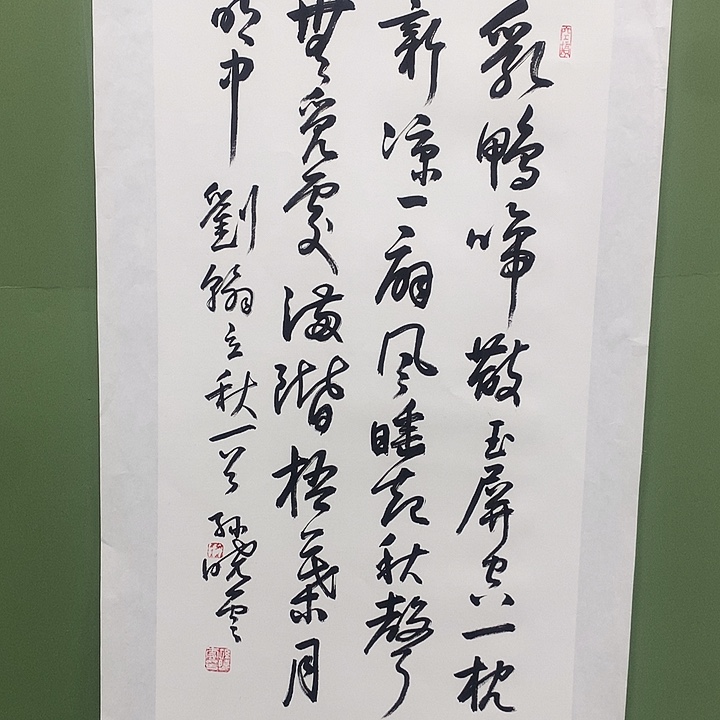 乳鴨啼散玉屏空一枕
新涼一扇風睡起秋聲
無覓處滿階梧葉月
明中 劉翰立秋一首 孫曉雲